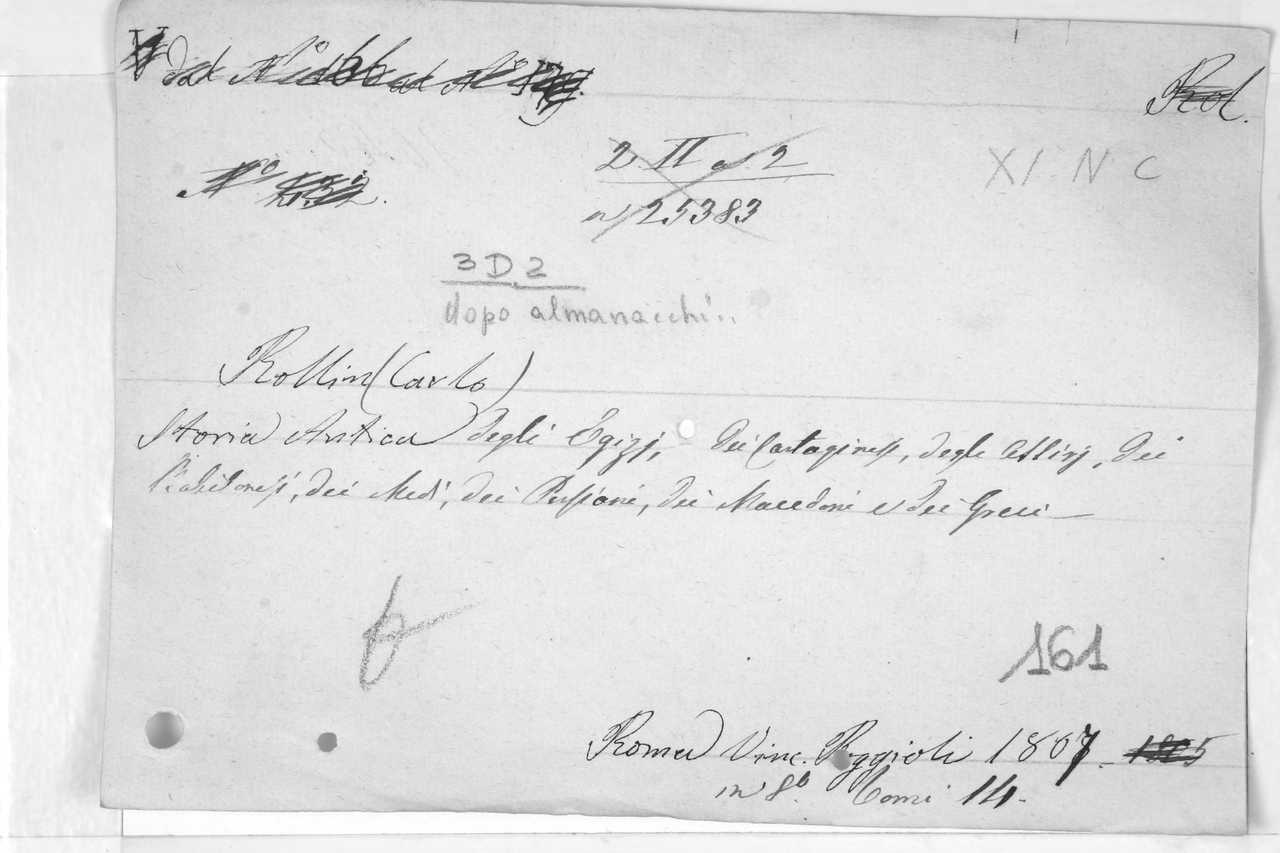 dal N.°
Rol.
N.°
2. II a. 2
XI N C
n 25383
3 D 2
dopo almanacchi..
Rollin (Carlo)
Storia Antica degli Egizj, dei Cartaginesi, degli Assirj, dei
Babilonesi, dei Medi, dei Persiani, dei Macedoni e dei Greci
161
Roma Vinc. Poggioli 1807.
in 8.° Tomi 14.